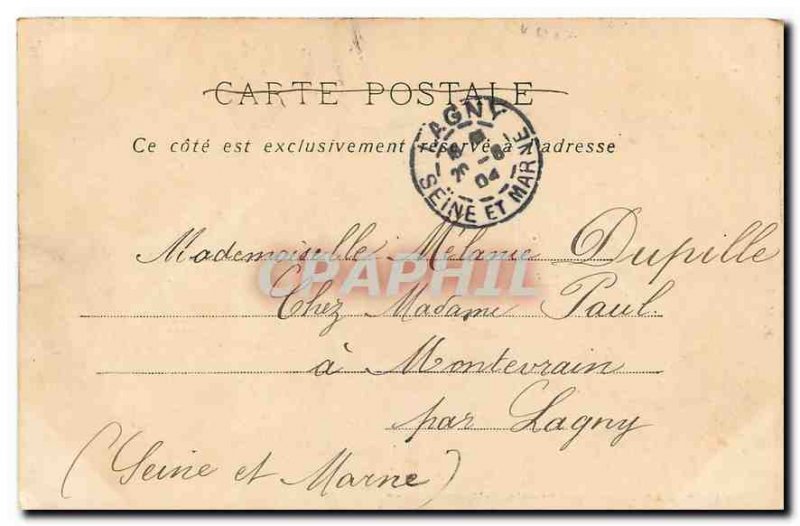 CARTE POSTALE
Ce côté est exclusivement réservé à l'adresse
LAGNY
20 -8
04
SEINE ET MARNE
Mademoiselle Mélanie Dupille
CPAPHIL
Chez Madame Paul.
à Montevrain
par Lagny
(Seine et Marne)